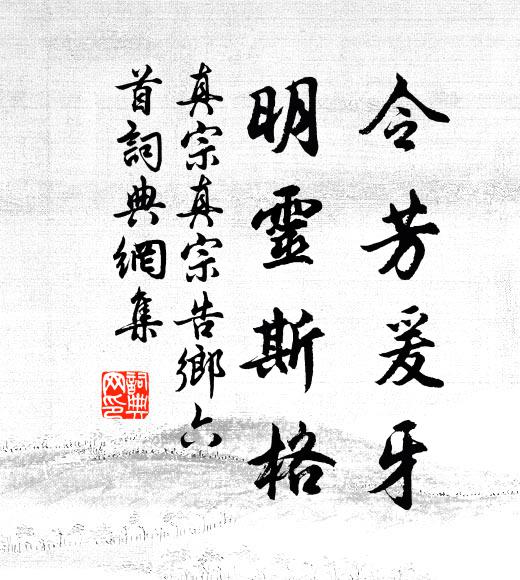 令芳爰牙
明靈斯格
真宗真宗告鄉六
首詞典網集
詞典
网印